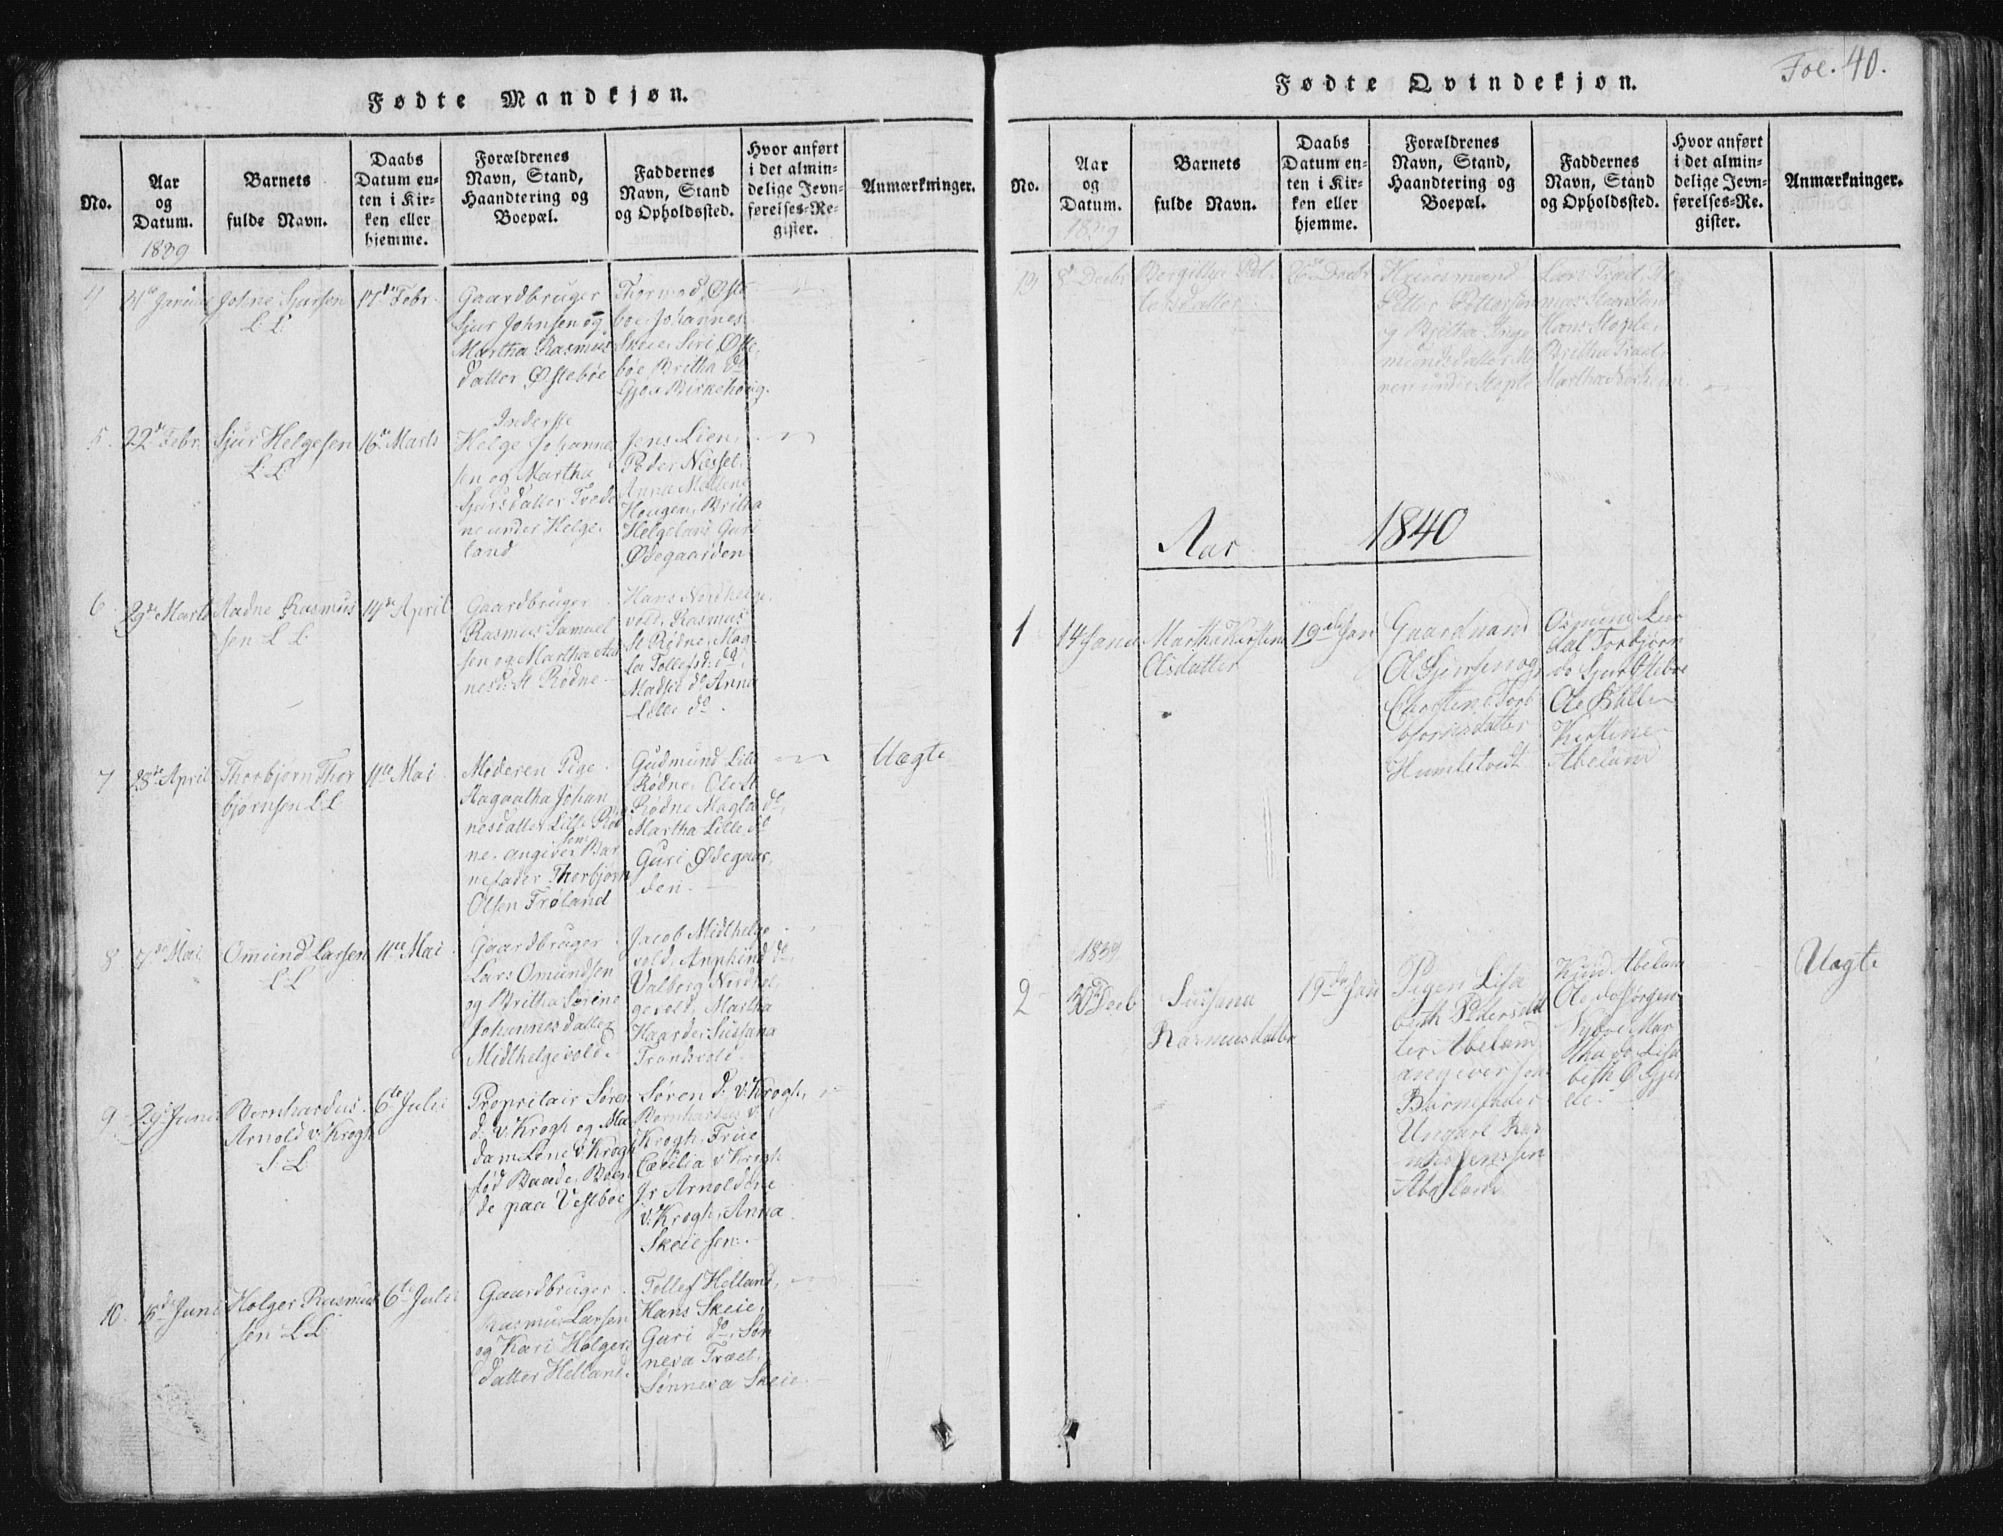 Fødte Mandkjøn.
No.
Aar
og
Datum.
1839
Barnets
fulde Navn.
Daabs
Datum en-
ten i Kir-
ken eller
hjemme.
Forældrenes
Navn, Stand,
Haandtering og
Boepæl.
Faddernes
Navn, Stand
og Opholdssted.
Hvor anført
i det almin-
delige Jevn-
førelses-Re-
gister.
Anmærkninger.
4
Johne Sjursen
L: L:
17de Febr.
Gaardbruger
Sjur Johnsen og
Martha Rasmus
datter Østebøe
Thormod Øste
boe, Johannes
Skeie, Siri Øste,
bøe, Britha do
Gjoe Birkehoug.
5
22de Febr.
Sjur Helgesen
L: L
16de Marts
Inderste
Helge Johanne
sen og Martha
Sjursdatter
ne under Helge,
land
Jens Lien,
Peder Næssel,
Anna Malene
Hougen, Britha
Helgeland Guri
Ødegaarden
6
29de Marts
Aadne Rasmus
sen L L:
14de April
Gaardbruger
Rasmus Samuel
sen og Martha Aad
nesd: St. Rødne
Hans Nordhelge,
vold, Rasmus
St Rødne, Mag-
la Tollefsd: do,
Madsel do Anna
Lille do.
7
28de April
Thorbjørn Thor
bjørnsen L L
11te Mai
Moderen Pige
Aagaatha Johan
nesdatter Lille Rød
ne, angiven Bar
nefader Thorbjørn
Olsen Frøland
Gudmund Lille
Rødne, Ole St
Rødne Magla do,
Martha Lille do
Guri Ødegaar,
den.
Uægte
8
7de Mai
Omund Larsen
L L
11te Mai
Gaardbruger
Lars Omundsen
og Britha Serine
Johannesdatter
Midthelgevold.
Jacob Midthelge
vold, do,
Valborg Nordhel
gevold, Martha
Haarde, Sussana
Trondsvold.
9
29de Juni
Bernhardus
Arnold v: Krogh
S: L
6te Juli
Propritair Søren
d. v: Krogh og Ma
dam Lene v Krogh
fød Baade, Boen
de paa Vestbøe
Søren d: v: Krogh,
Bernhardus v
Krogh, Frue
Cæcilia v Krogh
Jr Arnoldine
v: Krogh, Anna
Skeiesen.
10
15de Juni
Holger Rasmus
sen L L
6te Juli
Gaardbruger
Rasmus Larsen
og Kari Holgers
datter Helland.
Tollef Helland,
Hans Skeie,
Guri do, Søn
neva Træet,
Sønneva Skeie.
Fol. 40.
Fødte Qvindekjøn.
No.
Aar
og
Datum.
1839
Barnets
fulde Navn.
Daabs
Datum en-
ten i Kir-
ken eller
hjemme.
Forældrenes
Navn, Stand,
Haandtering og
Boepæl.
Faddernes
Navn, Stand
og Opholdssted.
Hvor anført
i det almin-
delige Jevn-
førelses-Re-
gister.
Anmærkninger.
13
8de Decbr
Bergitha Pet-
tersdatter
Decbr
Huusmand
Petter Pettersen
og Britha Inge
mundsdatter
under Stople
Hans Stople,
Britha Træet,
Martha
Aar 1840
1
14 Janu
Martha Kirstine
Olsdatter
19de Jan
Gaardmand
Ol Sjursen og
Torb
jørnsdatter
Humletvedt
Osmund Leer
dal Torbjørn
do Sjur Østeboe
Ole Bakke
Kirstine
Abeland
1839
2
30 Decb
Susana
Rasmusdatter
19de Jan
Pigen Lisa
beth Pedersdat
ter Abeland
angiver som
Barnefader
Ungkarl Ras
mus Jenssen
Abeland
Knud Abeland
Ole do Jørgen
Nyboe Mar
tha do Lisa
beth Ø Gjer
de.
Uægte